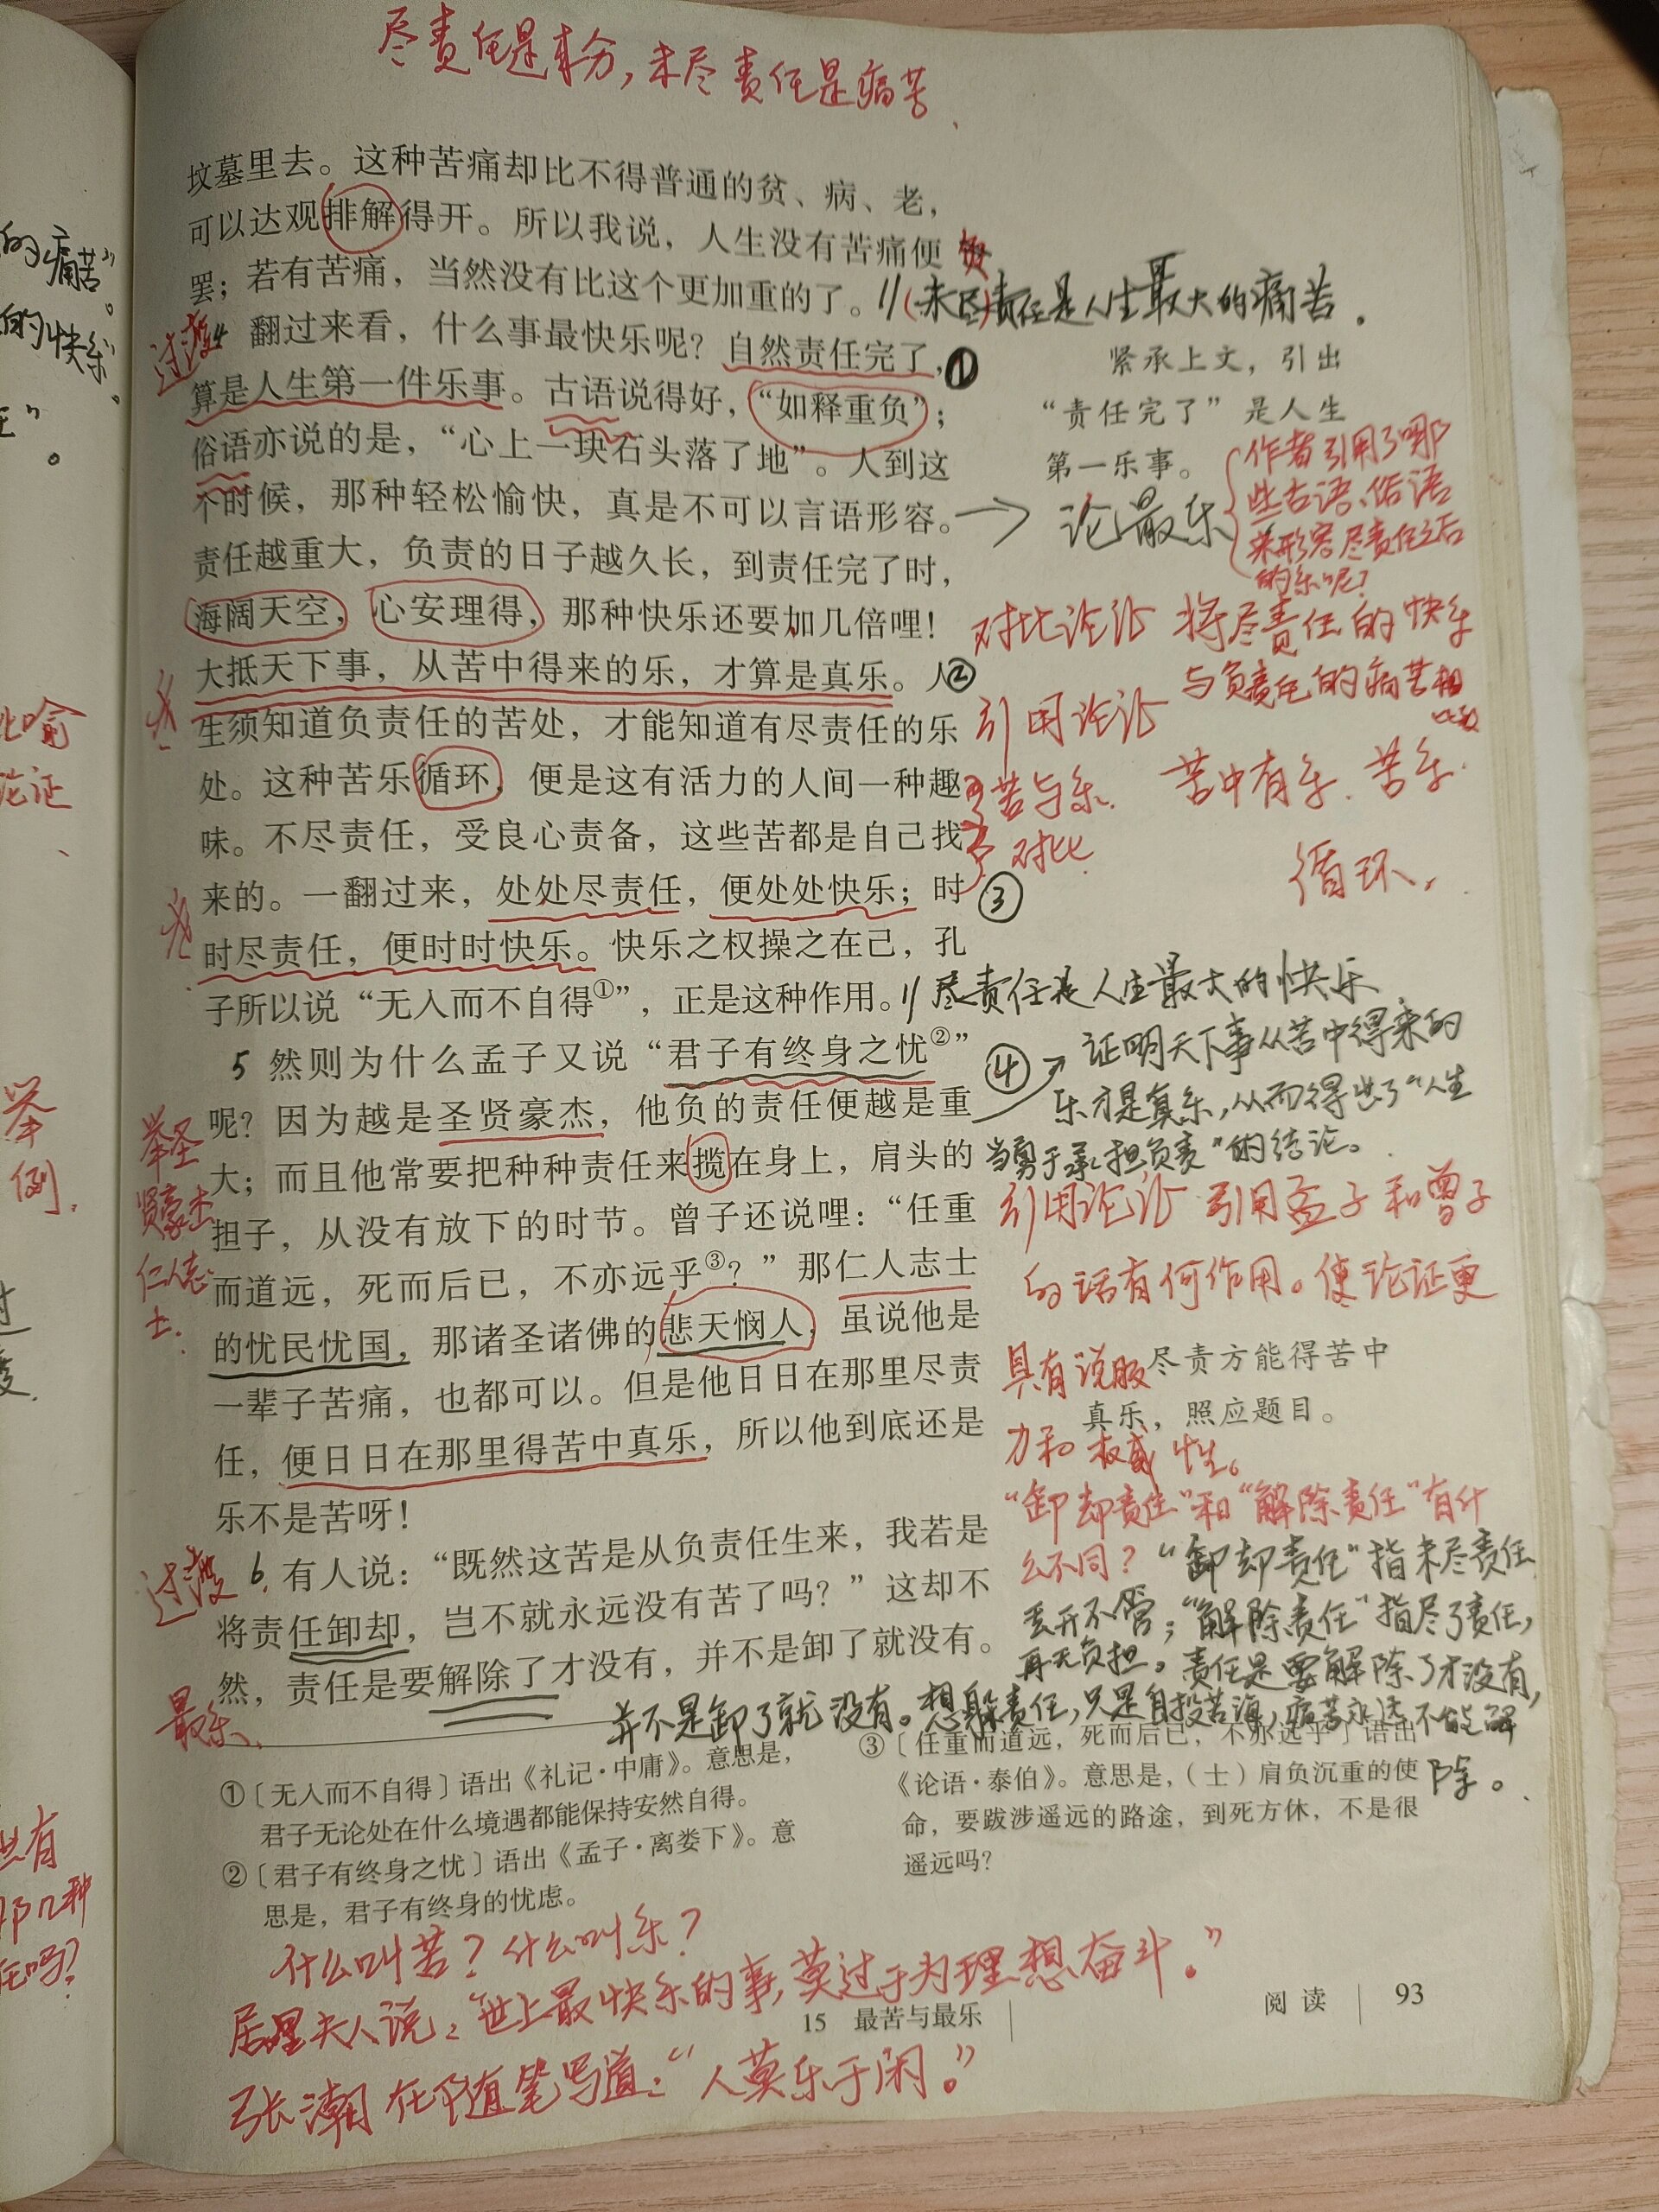 尽责任是本分，未尽责任是痛苦
坟墓里去。这种苦痛却比不得普通的贫、病、老，
可以达观排解得开。所以我说，人生没有苦痛便
罢；若有苦痛，当然没有比这个更加重的了。
(未尽)责任是人生最大的痛苦。
过渡
4 翻过来看，什么事最快乐呢？自然责任完了，①
算是人生第一件乐事。古语说得好，“如释重负”；
俗语亦说的是，“心上一块石头落了地”。人到这
个时候，那种轻松愉快，真是不可以言语形容。
责任越重大，负责的日子越久长，到责任完了时，
海阔天空，心安理得，那种快乐还要加几倍哩！
大抵天下事，从苦中得来的乐，才算是真乐。人②
生须知道负责任的苦处，才能知道有尽责任的乐
处。这种苦乐循环，便是这有活力的人间一种趣
味。不尽责任，受良心责备，这些苦都是自己找
来的。一翻过来，处处尽责任，便处处快乐；时③
时尽责任，便时时快乐。快乐之权操之在己，孔
子所以说“无入而不自得①”，正是这种作用。
尽责任是人生最大的快乐
紧承上文，引出
“责任完了”是人生
第一乐事。
论最乐
作者引用了哪
些古语、俗语
来形容尽责任之后
的乐呢？
对比论证 将尽责任的快乐
与负责任的痛苦相
引用论证
苦与乐
对比
苦中有乐、苦乐
循环。
5 然则为什么孟子又说“君子有终身之忧②”④
呢？因为越是圣贤豪杰，他负的责任便越是重
大；而且他常要把种种责任来揽在身上，肩头的
担子，从没有放下的时节。曾子还说哩：“任重
而道远，死而后已，不亦远乎③？”那仁人志士
的忧民忧国，那诸圣诸佛的悲天悯人，虽说他是
一辈子苦痛，也都可以。但是他日日在那里尽责
任，便日日在那里得苦中真乐，所以他到底还是
乐不是苦呀！
举圣
贤豪杰
仁人志
士.
证明天下事从苦中得来的
乐才是真乐，从而得出了“人生
当勇于承担负责”的结论。
引用论证 引用孟子和曾子
的话有何作用。使论证更
具有说服
力和权威性。
尽责方能得苦中
真乐，照应题目。
过渡
6. 有人说：“既然这苦是从负责任生来，我若是
将责任卸却，岂不就永远没有苦了吗？”这却不
然，责任是要解除了才没有，并不是卸了就没有。
最乐、
“卸却责任”和“解除责任”有什
么不同？“卸却责任”指未尽责任
丢开不管；“解除责任”指尽了责任，
再无负担。责任是要解除了才没有，
并不是卸了就没有。想躲责任，只是自投苦海，痛苦永远不能解
除。
①〔无入而不自得〕语出《礼记·中庸》。意思是，
君子无论处在什么境遇都能保持安然自得。
②〔君子有终身之忧〕语出《孟子·离娄下》。意
思是，君子有终身的忧虑。
③〔任重而道远，死而后已，不亦远乎〕语出
《论语·泰伯》。意思是，（士）肩负沉重的使
命，要跋涉遥远的路途，到死方休，不是很
遥远吗？
什么叫苦？什么叫乐？
居里夫人说：“世上最快乐的事，莫过于为理想奋斗。”
15 最苦与最乐
阅读 93
张潮在随笔写道：“人莫乐于闲。”
的痛苦”。
的快乐”。
比喻
论证
举
例.
共有
那几种
任吗？